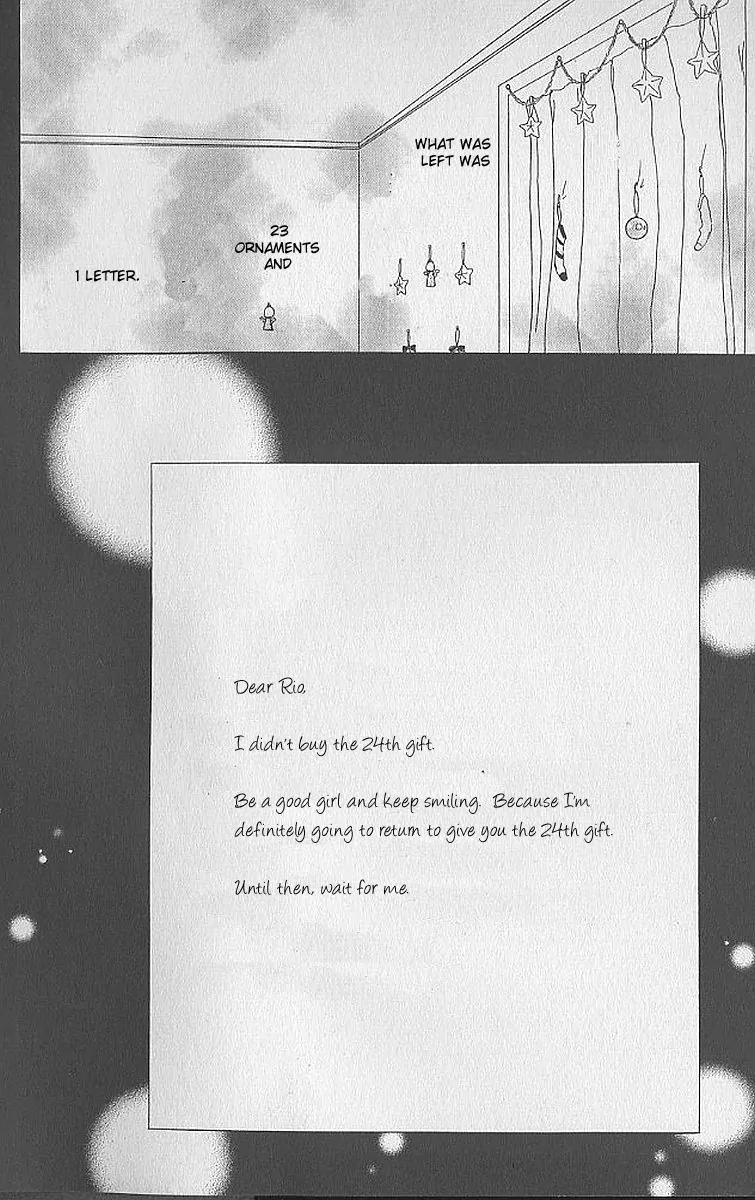 WHAT WAS
LEFT WAS
23
ORNAMENTS
AND
1 LETTER.
Dear Rio,
I didn't buy the 24th gift.
Be a good girl and keep smiling. Because I'm
definitely going to return to give you the 24th gift.
Until then, wait for me.